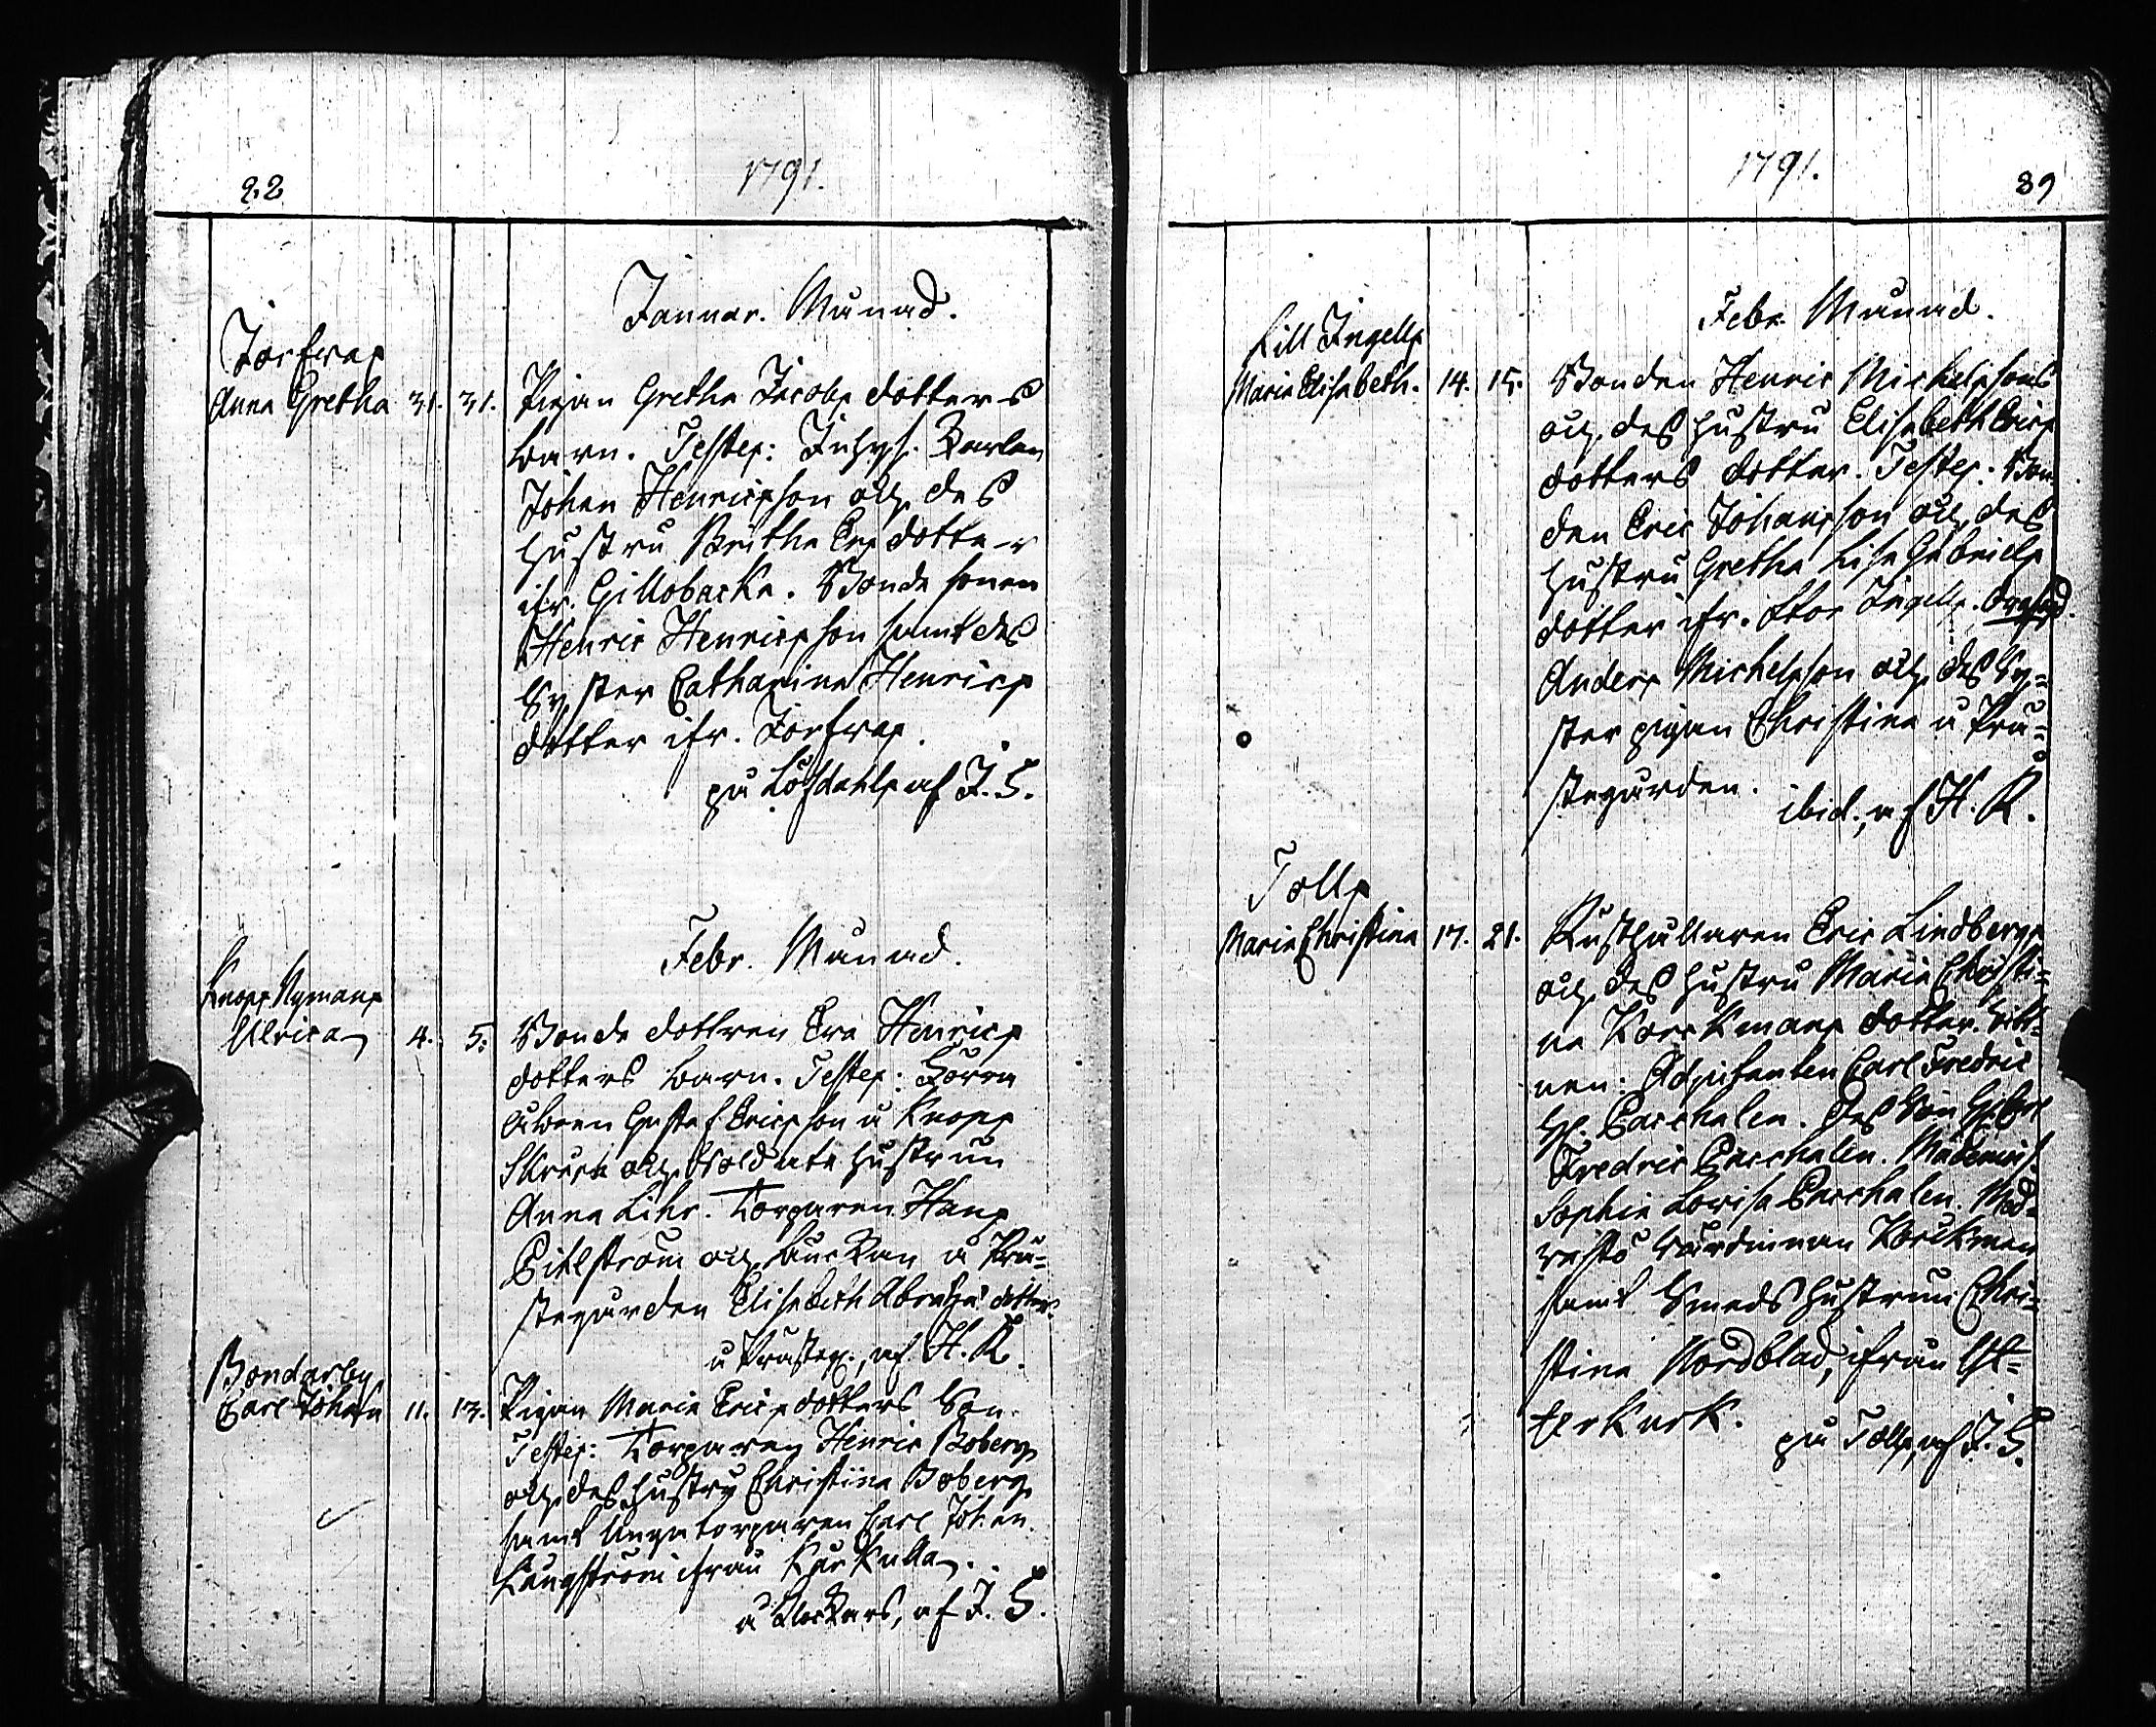 88
1791.
Januar. Månad.
Jorfwas
Anna Gretha 31. 31. Pigan Gretha Jacobs dotters
barn. Testes: Inhys. Karlen
Johan Henricsson och des
hustru Britha Ers dotter
ifr. Gillobacka. Bonde sonen
Henric Henricsson samt des
Syster Catharina Henrics
dotter ifr. Jorfwas.
på Löfdahls af J. S.
Febr. Månad.
Knops Nymans
Ulrica 4. 5. Bonde dottren Eva Henrics
dotters barn. Testes:
Gustaf Ericsson å Knops
och Soldats hustrun
Anna Lihr. Torparen Hans
Pihlström och Enkan å Prä=
stegården Elisabeth Abrah: dotter
å Prästeg., af H. R.
Bondarby
Carl Johan 11. 13. Pigan Maria Erics dotters Son.
Testes: Torparen Henric Boberg
och des hustru Christina Boberg
samt Unga torparen Carl Johan
Långström ifrån Karkulla.
å Klockars, af J. S.
1791.
89
Febr. Månad.
Lill Ingells
Maria Elisabeth. 14. 15. Bonden Henric Michelssons
och des hustru Elisabeth Erics
dotters dotter. Testes: Bon
den Eric Johansson och des
hustru Gretha Lisa Gabriels
dotter ifr. Stor Ingells.
Anders Michelsson och des Sy=
ster pigan Christina å Prä=
stegården.
ibid., af H. R.
Tolls
Maria Christina 17. 21. Rusthållaren Eric Lindbergs
och des hustru Maria Christi=
na Korckmans dotter. Witt=
nen: Adjutanten Carl Fredric
Hr. Paschalen. Des Son Hr. Carl
Fredric Paschalen. Mademois.
Sophia Lovisa Paschalen.
Wärdinnan Korckman
samt Smeds hustrun Chri=
stina Nordblad, ifrån Es=
terkark.
på Tolls, af J. S.